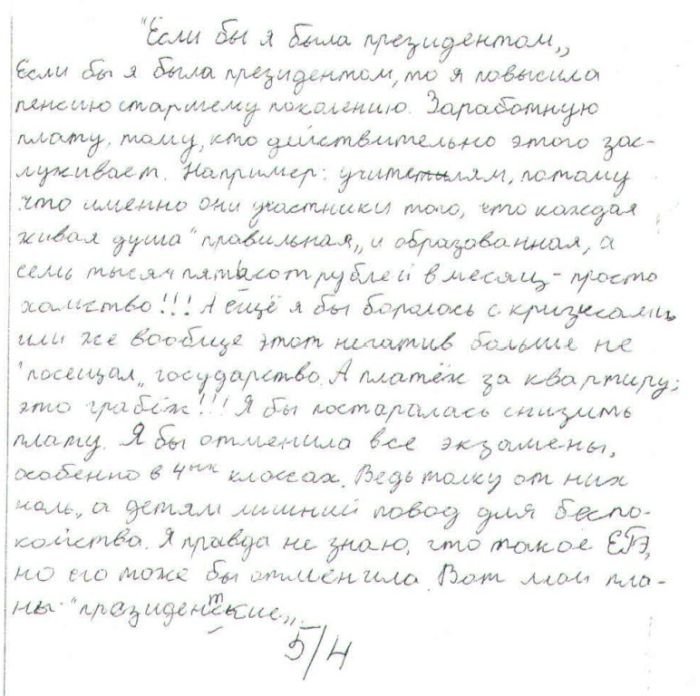 "Если бы я была президентом„
Если бы я была президентом, то я повысила
пенсию старшему поколению. Заработную
плату. тому, кто действительно этого зас-
луживает. Например: учителям, потому
что именно они участники того, что каждая
живая душа "правильная„ и образованная, а
семь тысяч пятьсот рублей в месяц - просто
хамство!!! А ещё я бы боролась с кризисами,
или же вообще этот негатив больше не
"посещал„ государство. А платёж за квартиру;
это грабёж!!! Я бы постаралась снизить
плату. Я бы отменила все экзамены,
особенно в 4ых классах. Ведь толку от них
ноль, а детям лишний повод для беспо-
койства. Я правда не знаю, что такое ЕГЭ,
но его тоже бы отменила. Вот мои пла-
ны "президентские„.
5/4